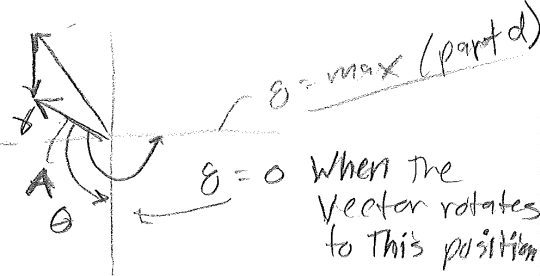 g = max (part d)
A
θ
g = 0 When the
Vector rotates
to This position